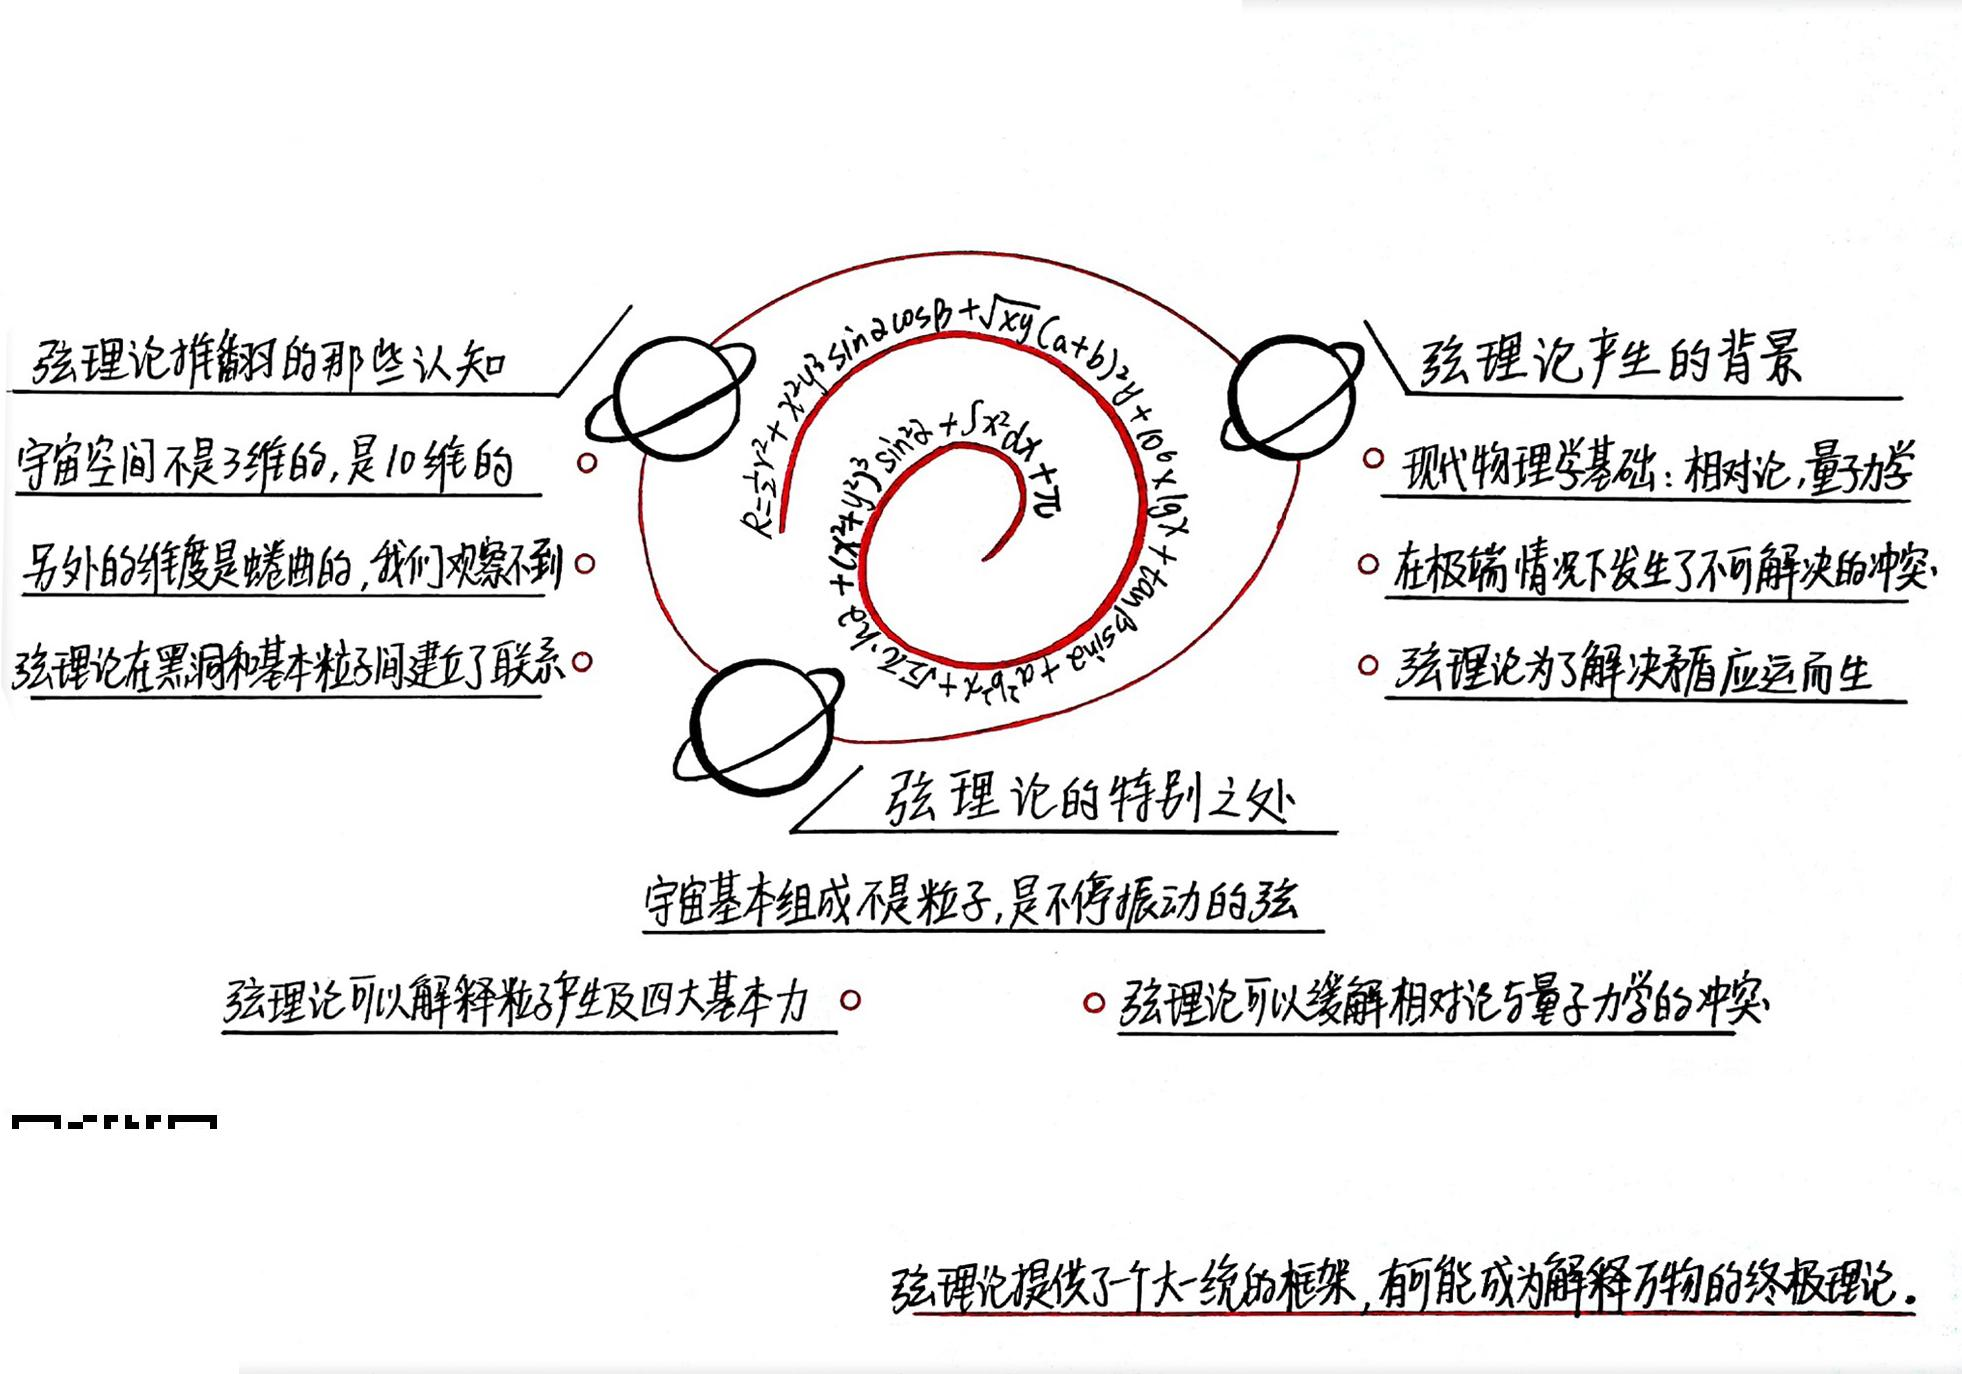 弦理论推翻的那些认知
宇宙空间不是3维的,是10维的
另外的维度是蜷曲的,我们观察不到
弦理论在黑洞和基本粒子间建立了联系
R=½r²+x²y³sinαcosβ+√xy(a+b)²y+10⁶×lgx+tanβsinα+a²b²x+√2π·hα+(x²+y²)³sin²α+∫x²dx+π
弦理论产生的背景
现代物理学基础:相对论,量子力学
在极端情况下发生了不可解决的冲突
弦理论为了解决矛盾应运而生
弦理论的特别之处
宇宙基本组成不是粒子,是不停振动的弦
弦理论可以解释粒子产生及四大基本力
弦理论可以缓解相对论与量子力学的冲突
弦理论提供了一个大一统的框架,有可能成为解释万物的终极理论.